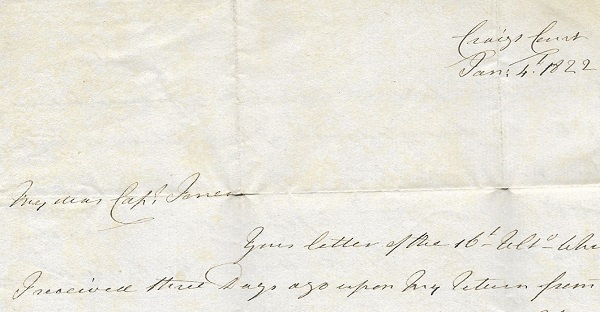 Craigs Court
Jan: 4t. 1822
My dear Capt. Jones
Your letter of the 16t Ulto
I received three Days ago upon my return from